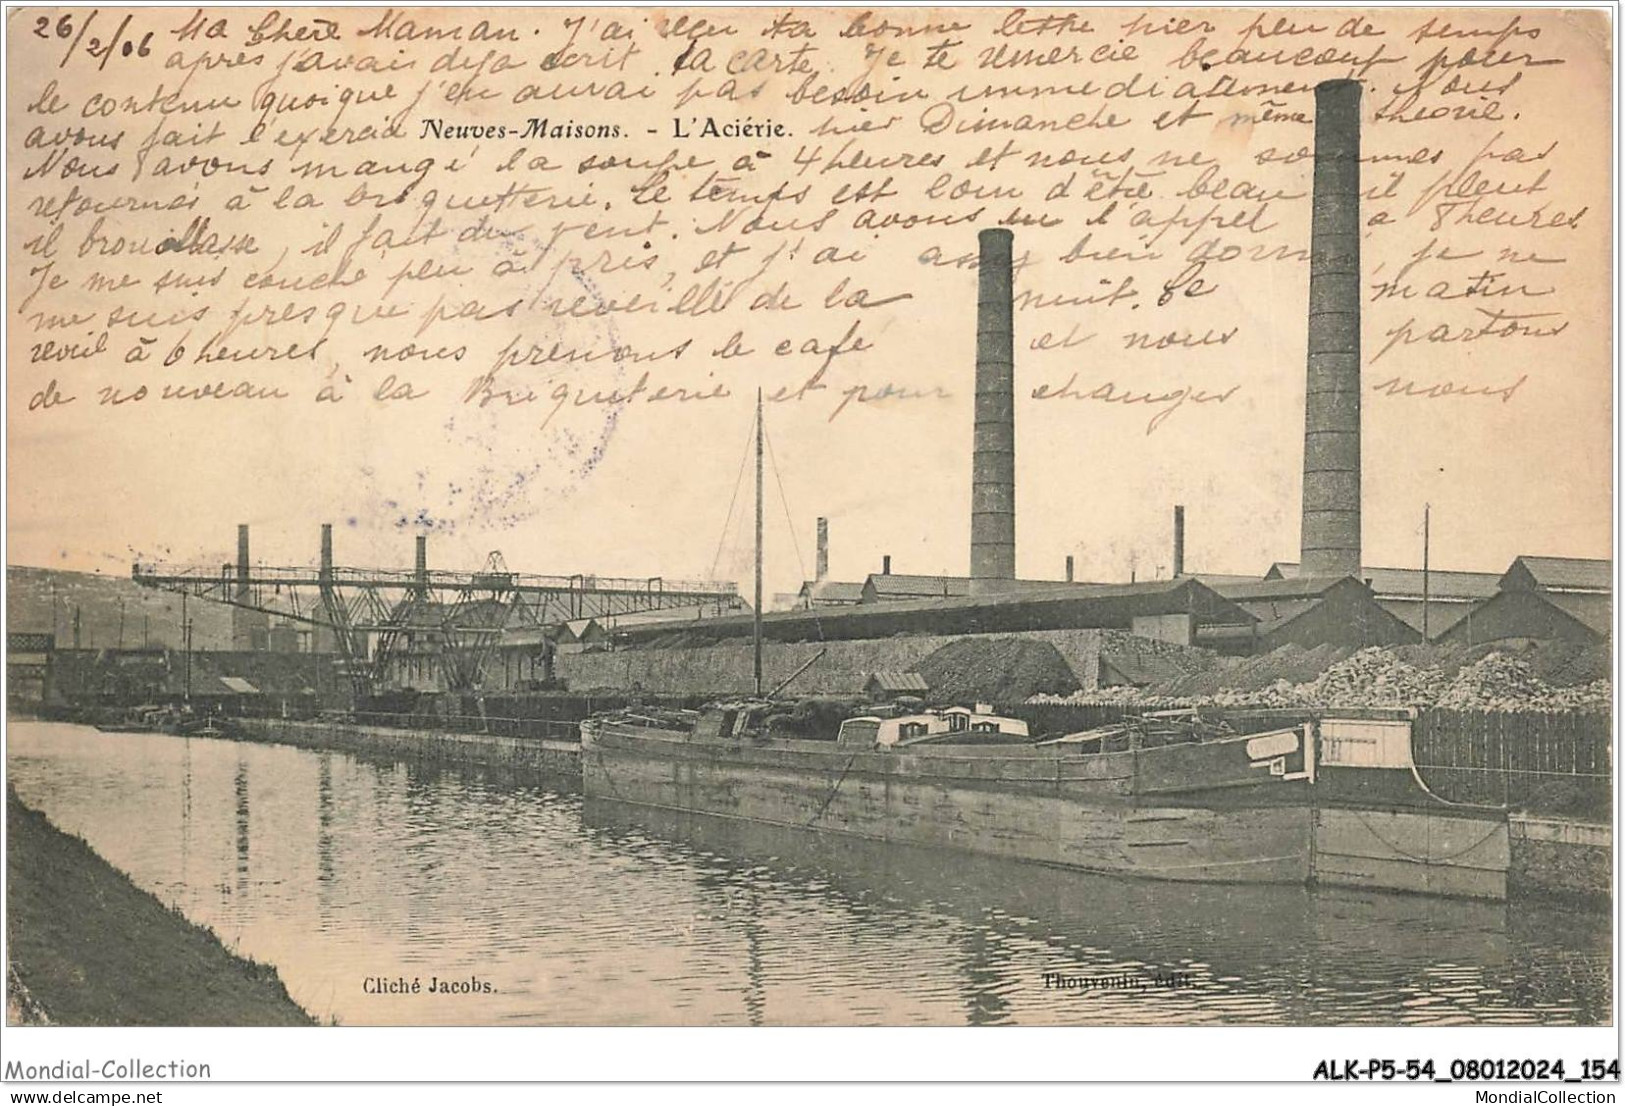 26/2/06 Ma Chère Maman. J'ai reçu ta bonne lettre hier peu de temps
après j'avais deja écrit ta carte. Je te remercie beaucoup pour
le contenu quoique j'en aurai pas besoin immediatement. Nous
avons fait l'exercice hier Dimanche et même théorie.
Neuves-Maisons. - L'Aciérie.
Nous avons mangé la soupe à 4 heures et nous ne sommes pas
retournés à la briquetterie. Le temps est loin d'être beau il pleut
il brouillasse, il fait du vent. Nous avons eu l'appel à 8 heures
Je me suis couché peu à pris, et j'ai assez bien dormi, je ne
me suis presque pas reveillé de la nuit. Le matin
reveil à 6 heures, nous prenons le café et nous partons
de nouveau à la Briqueterie et pour changer nous
Cliché Jacobs.
Thouvenin, édit.
Mondial-Collection
ALK-P5-54_08012024_154
https://www.delcampe.net
MondialCollection